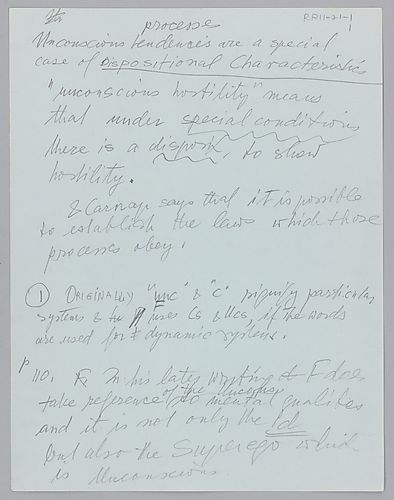 RR11-21-1
processes
Unconscious tendencies are a special
case of Dispositional Characteristics
"unconscious hostility" means
that under special conditions
there is a disposit. to show
hostility.
& Carnap says that it is possible
to establish the laws which those
processes obey.
① ORIGINALLY "unc" & "c" signify particular
systems & F uses Cs & Ucs, if the words
are used for dynamic systems.
p 110. In his later writing F does
take reference of the unconsc. to mental qualities
and it is not only the Id
but also the Superego which
is Unconscious.